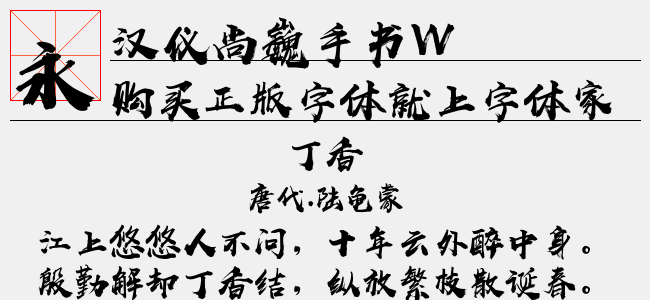 永
汉仪尚巍手书W
购买正版字体就上字体家
丁香
唐代.陆龟蒙
江上悠悠人不问，十年云外醉中身。
殷勤解却丁香结，纵放繁枝散诞春。